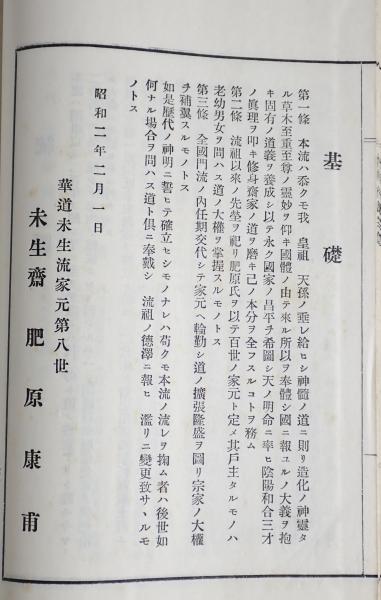 基礎
第一條 本流ハ恭クモ我 皇祖 天孫ノ垂レ給ヒシ神髓ノ道ニ則リ造化ノ神靈タ
ル草木至重至尊ノ靈妙ヲ仰キ國體ノ由テ來ル所以ヲ奉體シ國ニ報ユルノ大義ヲ抱
キ固有ノ道義ヲ養成シ以テ永ク國家ノ昌平ヲ希圖シ天ノ明命ニ率ヒ陰陽和合三才
ノ眞理ヲ叩キ修身齋家ノ道ヲ磨キ己ノ本分ヲ全フスルコトヲ務ム
第二條 流祖以來ノ先塋ヲ祀リ肥原氏ヲ以テ百世ノ家元ト定メ其戸主タルモノハ
老幼男女ヲ問ハス道ノ大權ヲ掌握スルモノトス
第三條 全國門流ノ內任期交代シテ家元ヘ輪勤シ道ノ擴張隆盛ヲ圖リ宗家ノ大權
ヲ補翼スルモノトス
如是歷代ノ神明ニ誓ヒテ確立セシモノナレハ苟クモ本流ノ流レヲ掬ム者ハ後世如
何ナル場合ヲ問ハス道ト俱ニ奉戴シ 流祖ノ德澤ニ報ヒ 濫リニ變更致サヽルモ
ノトス
昭和二年二月一日
華道未生流家元第八世
未生齋 肥原康甫